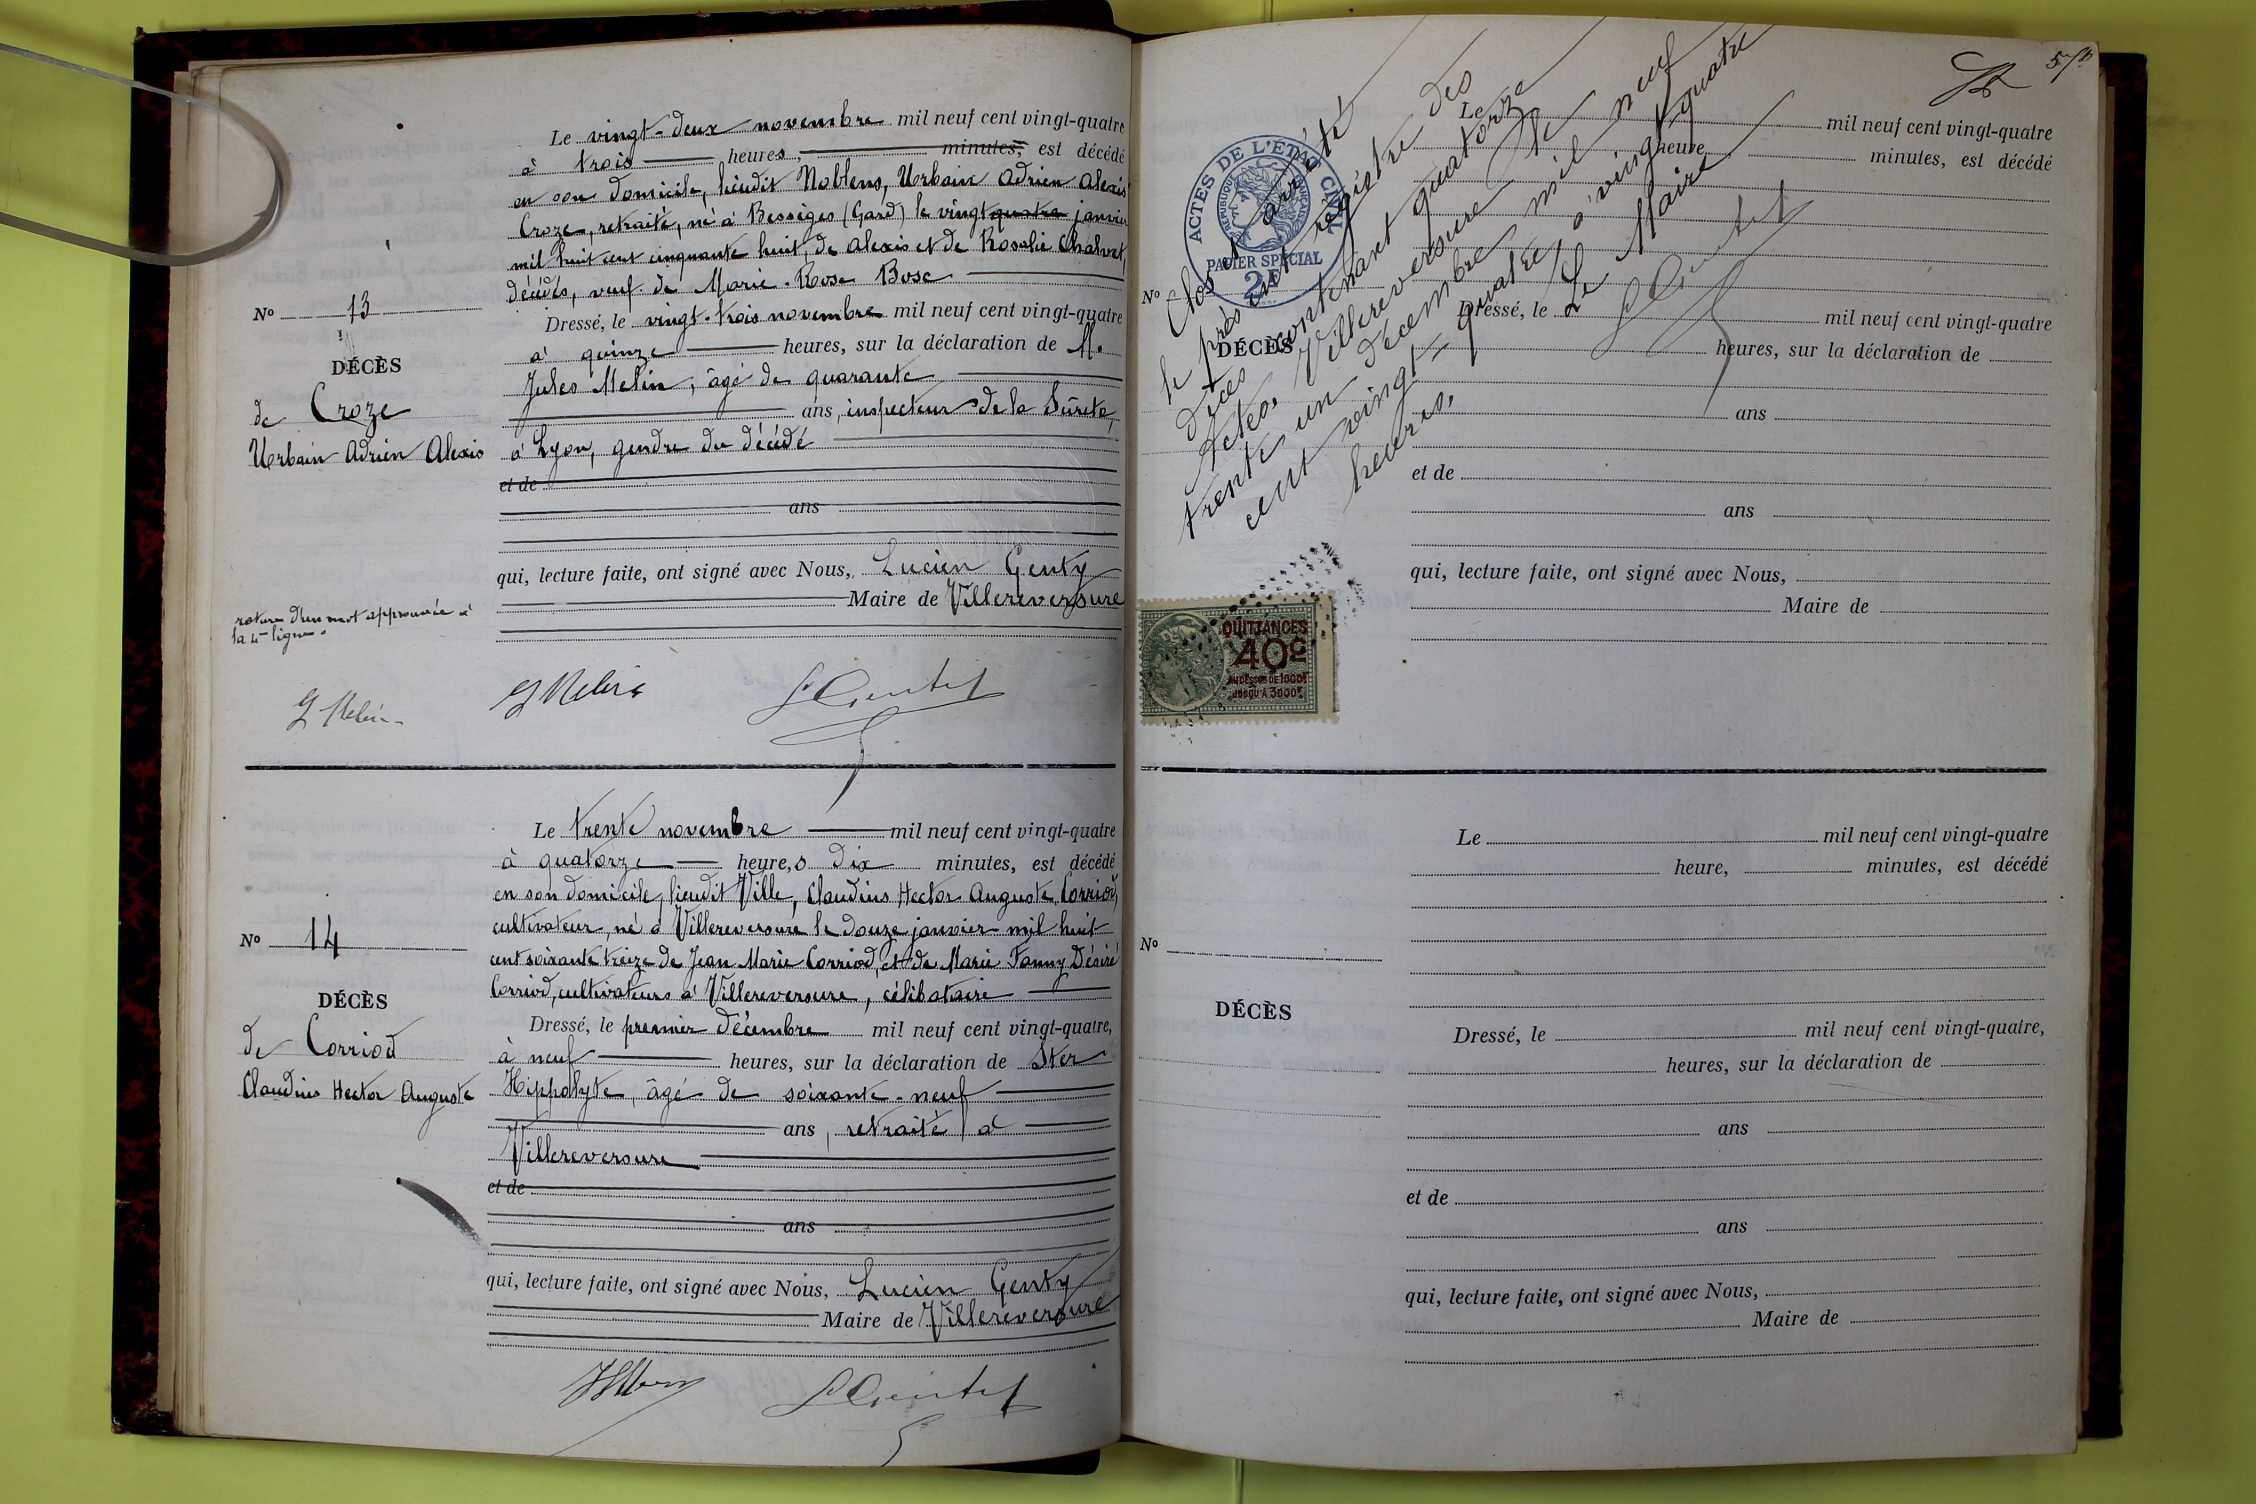 Le vingt-deux novembre mil neuf cent vingt-quatre
à trois heures, minutes, est décédé
en son domicile, lieudit Noblens, Urbain Adrien Alexis
Croze, retraité, né à Bessèges (Gard) le vingt quatre janvier
mil huit cent cinquante huit, de Alexis et de Rosalie Chalvet,
décédés, veuf de Marie-Rose Bosc
Dressé, le vingt-trois novembre mil neuf cent vingt-quatre
à quinze heures, sur la déclaration de M.
Jules Melin, âgé de quarante
ans, inspecteur de la Sûreté,
à Lyon, gendre du décédé
et de
ans
qui, lecture faite, ont signé avec Nous, Lucien Genty
Maire de Villereversure
No 13
DÉCÈS
de Croze
Urbain Adrien Alexis
rature d'un mot approuvée à
la 4me ligne.
J Melin
J Melin
L Genty
Le trente novembre mil neuf cent vingt-quatre
à quatorze heure,s dix minutes, est décédé
en son domicile, lieudit Ville, Claudius Hector Auguste Corriod,
cultivateur, né à Villereversure le douze janvier mil huit
cent soixante treize de Jean Marie Corriod, et de Marie Fanny Désiré
Corriod, cultivateurs à Villereversure, célibataire
Dressé, le premier décembre mil neuf cent vingt-quatre,
à neuf heures, sur la déclaration de
Hippolyte, âgé de soixante-neuf
ans, retraité à
Villereversure
et de
ans
qui, lecture faite, ont signé avec Nous, Lucien Genty
Maire de Villereversure
No 14
DÉCÈS
de Corriod
Claudius Hector Auguste
L Genty
57
Clos et arrêté
le présent registre des
décès contenant quatorze
Actes. Villereversure le
trente un décembre mil neuf
cent vingt-quatre, à vingt quatre
heures.
Le Maire
L Genty
ACTES DE L'ÉTAT CIVIL
RÉPUBLIQUE FRANÇAISE
PAPIER SPÉCIAL
2F
Le mil neuf cent vingt-quatre
heure, minutes, est décédé
No
DÉCÈS
Dressé, le mil neuf cent vingt-quatre
heures, sur la déclaration de
ans
et de
ans
qui, lecture faite, ont signé avec Nous,
Maire de
QUITTANCES
40c
AU DESSUS DE 1000F
JUSQU'À 3000F
Le mil neuf cent vingt-quatre
heure, minutes, est décédé
No
DÉCÈS
Dressé, le mil neuf cent vingt-quatre,
heures, sur la déclaration de
ans
et de
ans
qui, lecture faite, ont signé avec Nous,
Maire de